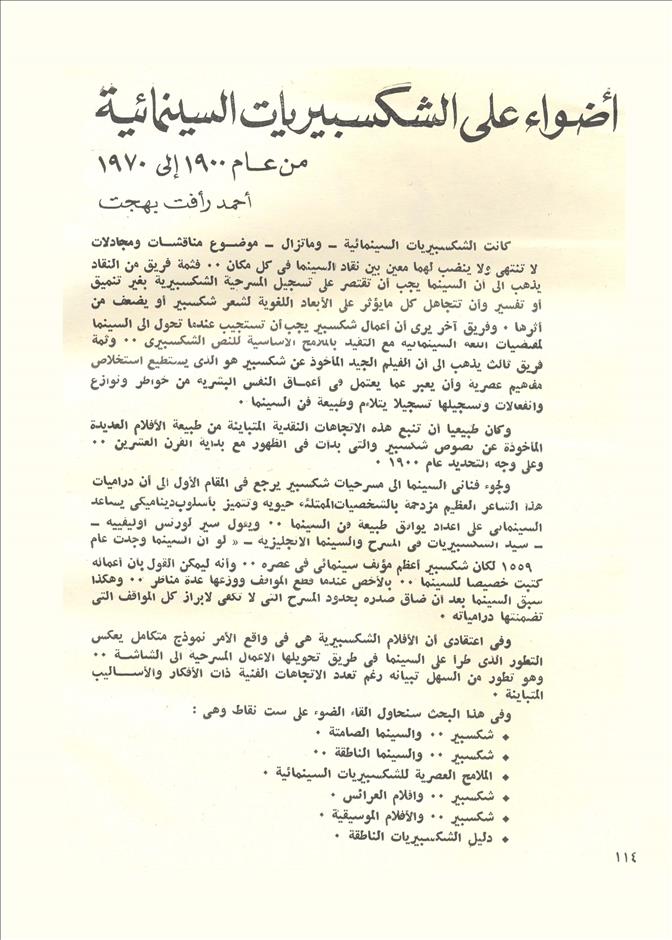 أضواء على الشكسبيريات السينمائية
من عام ١٩٠٠ إلى ١٩٧٠
أحمد رأفت بهجت
كانت الشكسبيريات السينمائية - وماتزال - موضوع مناقشات ومجادلات
لا تنتهى ولا ينضب لهما معين بين نقاد السينما فى كل مكان ٠٠ فثمة فريق من النقاد
يذهب الى أن السينما يجب أن تقتصر على تسجيل المسرحية الشكسبيرية بغير تنميق
أو تفسير وأن تتجاهل كل مايؤثر على الأبعاد اللغوية لشعر شكسبير أو يضعف من
أثرها ٠ وفريق آخر يرى أن أعمال شكسبير يجب أن تستجيب عندما تحول الى السينما
لمقتضيات اللغة السينمائية مع التقيد بالملامح الأساسية للنص الشكسبيرى ٠٠ وثمة
فريق ثالث يذهب الى أن الفيلم الجيد المأخوذ عن شكسبير هو الذى يستطيع استخلاص
مفاهيم عصرية وأن يعبر عما يعتمل فى أعماق النفس البشرية من خواطر ونوازع
وانفعالات وتسجيلها تسجيلا يتلاءم وطبيعة فن السينما ٠
وكان طبيعيا أن تنبع هذه الاتجاهات النقدية المتباينة من طبيعة الأفلام العديدة
المأخوذة عن نصوص شكسبير والتى بدأت فى الظهور مع بداية القرن العشرين ٠٠
وعلى وجه التحديد عام ١٩٠٠ ٠
ولجوء فنانى السينما الى مسرحيات شكسبير يرجع فى المقام الأول الى أن دراميات
هذا الشاعر العظيم مزدحمة بالشخصيات الممتلئة حيويه وتتميز بأسلوب ديناميكى يساعد
السينمائى على اعداد يوافق طبيعة فن السينما ٠٠ ويقول سير لورنس أوليفييه -
- سيد الشكسبيريات فى المسرح والسينما الانجليزية - « لو أن السينما وجدت عام
١٥٥٩ لكان شكسبير أعظم مؤلف سينمائى فى عصره ٠٠ وأنه ليمكن القول بأن أعماله
كتبت خصيصا للسينما ٠٠ بالأخص عندما قطع المواقف ووزعها عدة مناظر ٠٠ وهكذا
سبق السينما بعد أن ضاق صدره بحدود المسرح التى لا تكفى لابراز كل المواقف التى
تضمنتها درامياته ٠
وفى اعتقادى أن الأفلام الشكسبيرية هى فى واقع الأمر نموذج متكامل يعكس
التطور الذى طرأ على السينما فى طريق تحويلها الاعمال المسرحية الى الشاشة ٠٠
وهو تطور من السهل تبيانه رغم تعدد الاتجاهات الفنية ذات الأفكار والأساليب
المتباينة ٠
وفى هذا البحث سنحاول القاء الضوء على ست نقاط وهى :
◆ شكسبير ٠٠ والسينما الصامتة ٠
◆ شكسبير ٠٠ والسينما الناطقة ٠٠
◆ الملامح العصرية للشكسبيريات السينمائية ٠
◆ شكسبير ٠٠ وافلام العرائس ٠
◆ شكسبير ٠٠ والأفلام الموسيقية ٠
◆ دليل الشكسبيريات الناطقة ٠
١١٤